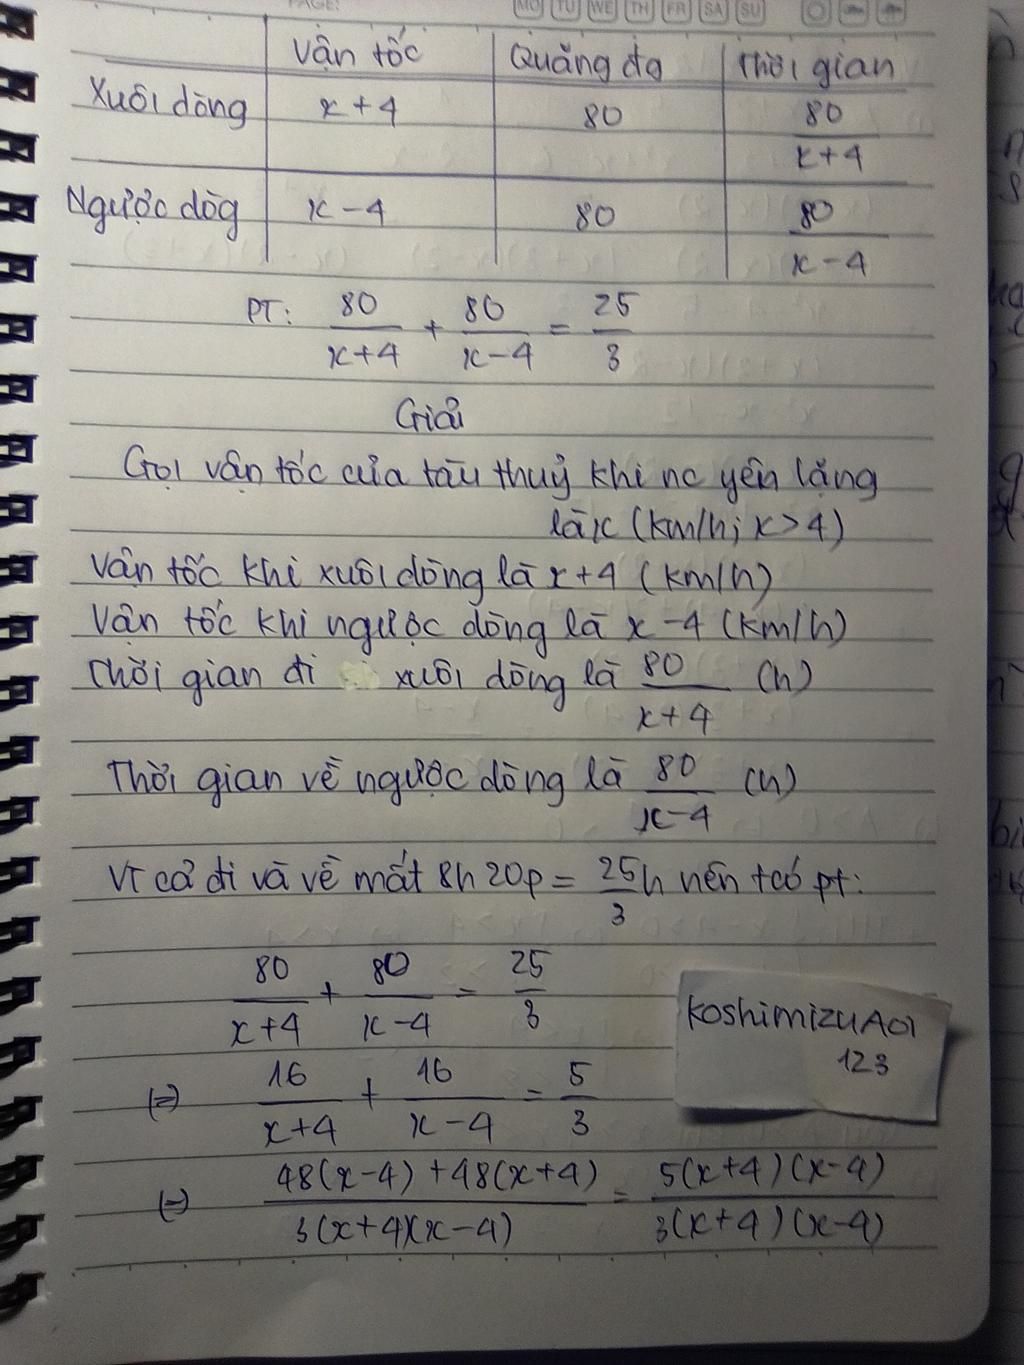 PAGE:
MO TU WE TH FR SA SU
Vận tốc Quãng đg Thời gian
Xuôi dòng x+4 80 80/(x+4)
Ngược dòg x-4 80 80/(x-4)
PT: 80/(x+4) + 80/(x-4) = 25/3
Giải
Gọi vận tốc của tàu thuỷ khi nc yên lặng
là x (km/h; x>4)
Vận tốc khi xuôi dòng là x+4 (km/h)
Vận tốc khi ngược dòng là x-4 (km/h)
Thời gian đi xuôi dòng là 80/(x+4) (h)
Thời gian về ngược dòng là 80/(x-4) (h)
Vì cả đi và về mất 8h20p = 25/3 h nên tcó pt:
80/(x+4) + 80/(x-4) = 25/3
(=) 16/(x+4) + 16/(x-4) = 5/3
(=) (48(x-4)+48(x+4))/(3(x+4)(x-4)) = (5(x+4)(x-4))/(3(x+4)(x-4))
KoshimizuAoi
123